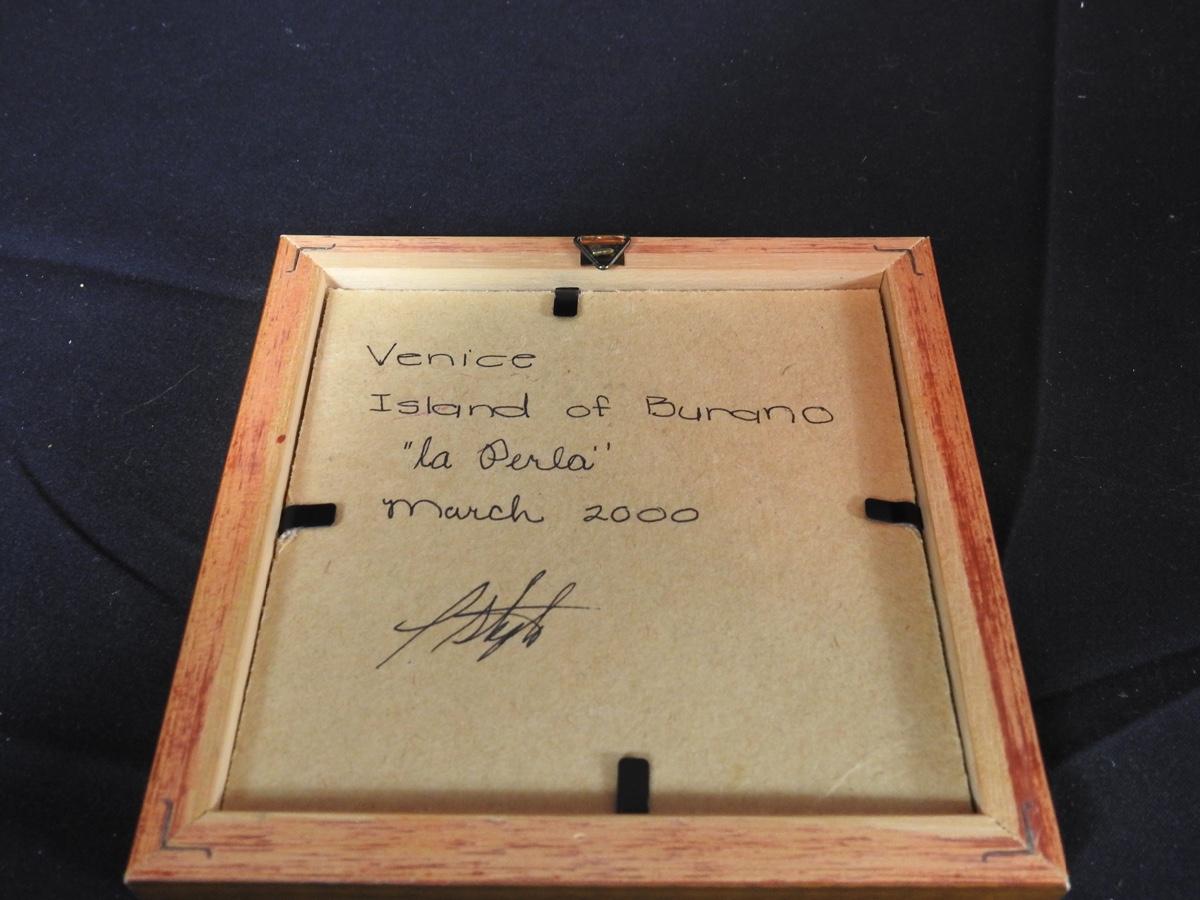 Venice
Island of Burano
"la Perla"
March 2000